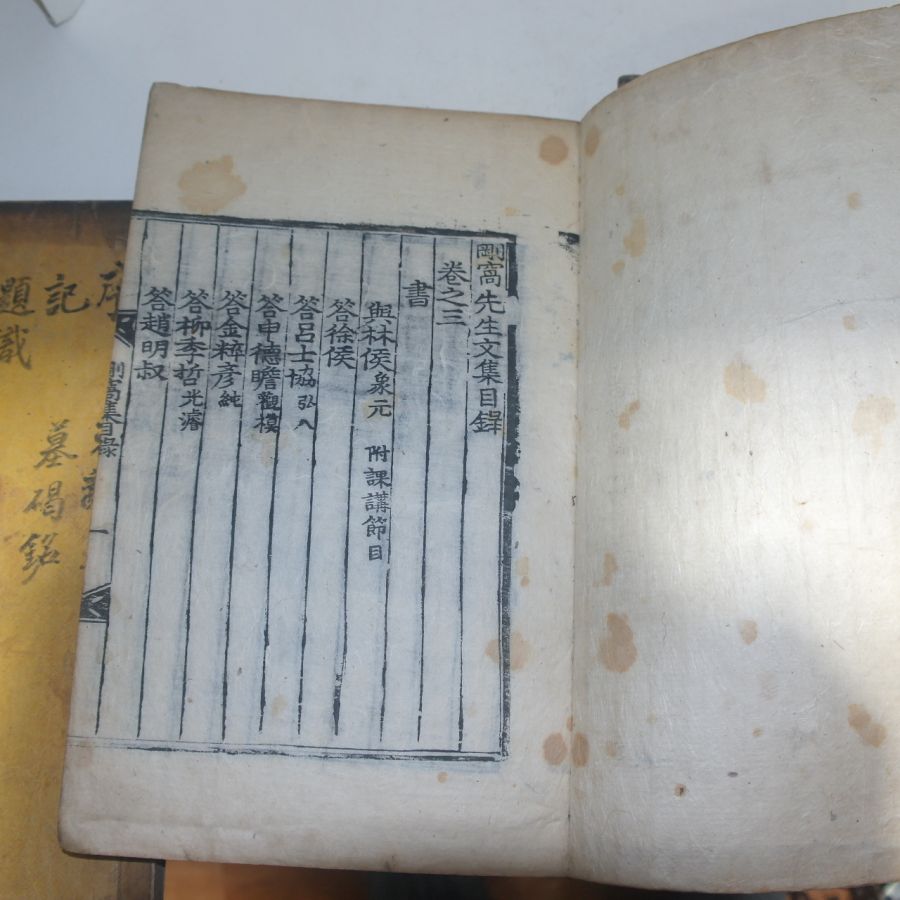 剛窩先生文集目錄
卷之三
書
與林侯象元 附課講節目
答徐侯
答呂士協 弘八
答申德瞻 觀模
答金粹彦 純
答柳季哲 光濬
答趙明叔
剛窩集目錄 一
序
記
題識
墓碣銘